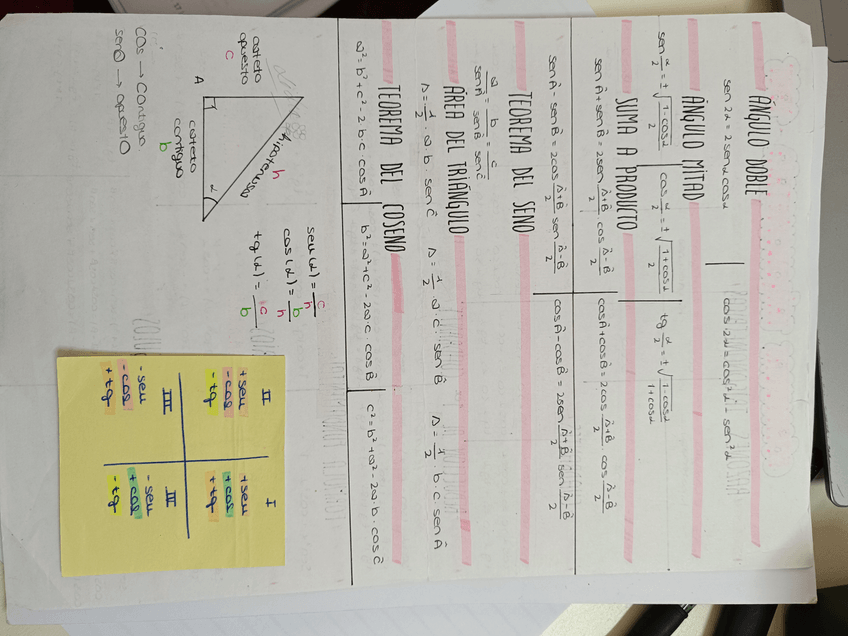 ÁNGULO DOBLE
sen 2α = 2 sen α cos α
cos 2α = cos² α - sen² α
ÁNGULO MITAD
sen α/2 = ± √(1-cos α/2)
cos α/2 = ± √(1+cos α/2)
tg α/2 = ± √(1-cos α/1+cos α)
SUMA A PRODUCTO
sen Â + sen B̂ = 2 sen Â+B̂/2 . cos Â-B̂/2
cos Â + cos B̂ = 2 cos Â+B̂/2 cos Â-B̂/2
sen Â - sen B̂ = 2 cos Â+B̂/2 sen Â-B̂/2
cos Â - cos B̂ = 2 sen Â+B̂/2 sen Â-B̂/2
TEOREMA DEL SENO
a/sen Â = b/sen B̂ = c/sen Ĉ
ÁREA DEL TRIÁNGULO
A = 1/2 . a . b . sen Ĉ
A = 1/2 . a . c . sen B̂
A = 1/2 b . c . sen Â
TEOREMA DEL COSENO
a² = b² + c² - 2 . b . c . cos Â
b² = a² + c² - 2a . c . cos B̂
c² = b² + a² - 2a . b . cos Ĉ
cateto
opuesto
c
hipotenusa
h
A
α
cateto
contiguo
b
sen (α) = c/h
cos (α) = b/h
tg (α) = c/b
cos → contiguo
seno → opuesto
II
+ sen
- cos
- tg
I
+ sen
+ cos
+ tg
III
- sen
- cos
+ tg
III
- sen
+ cos
- tg